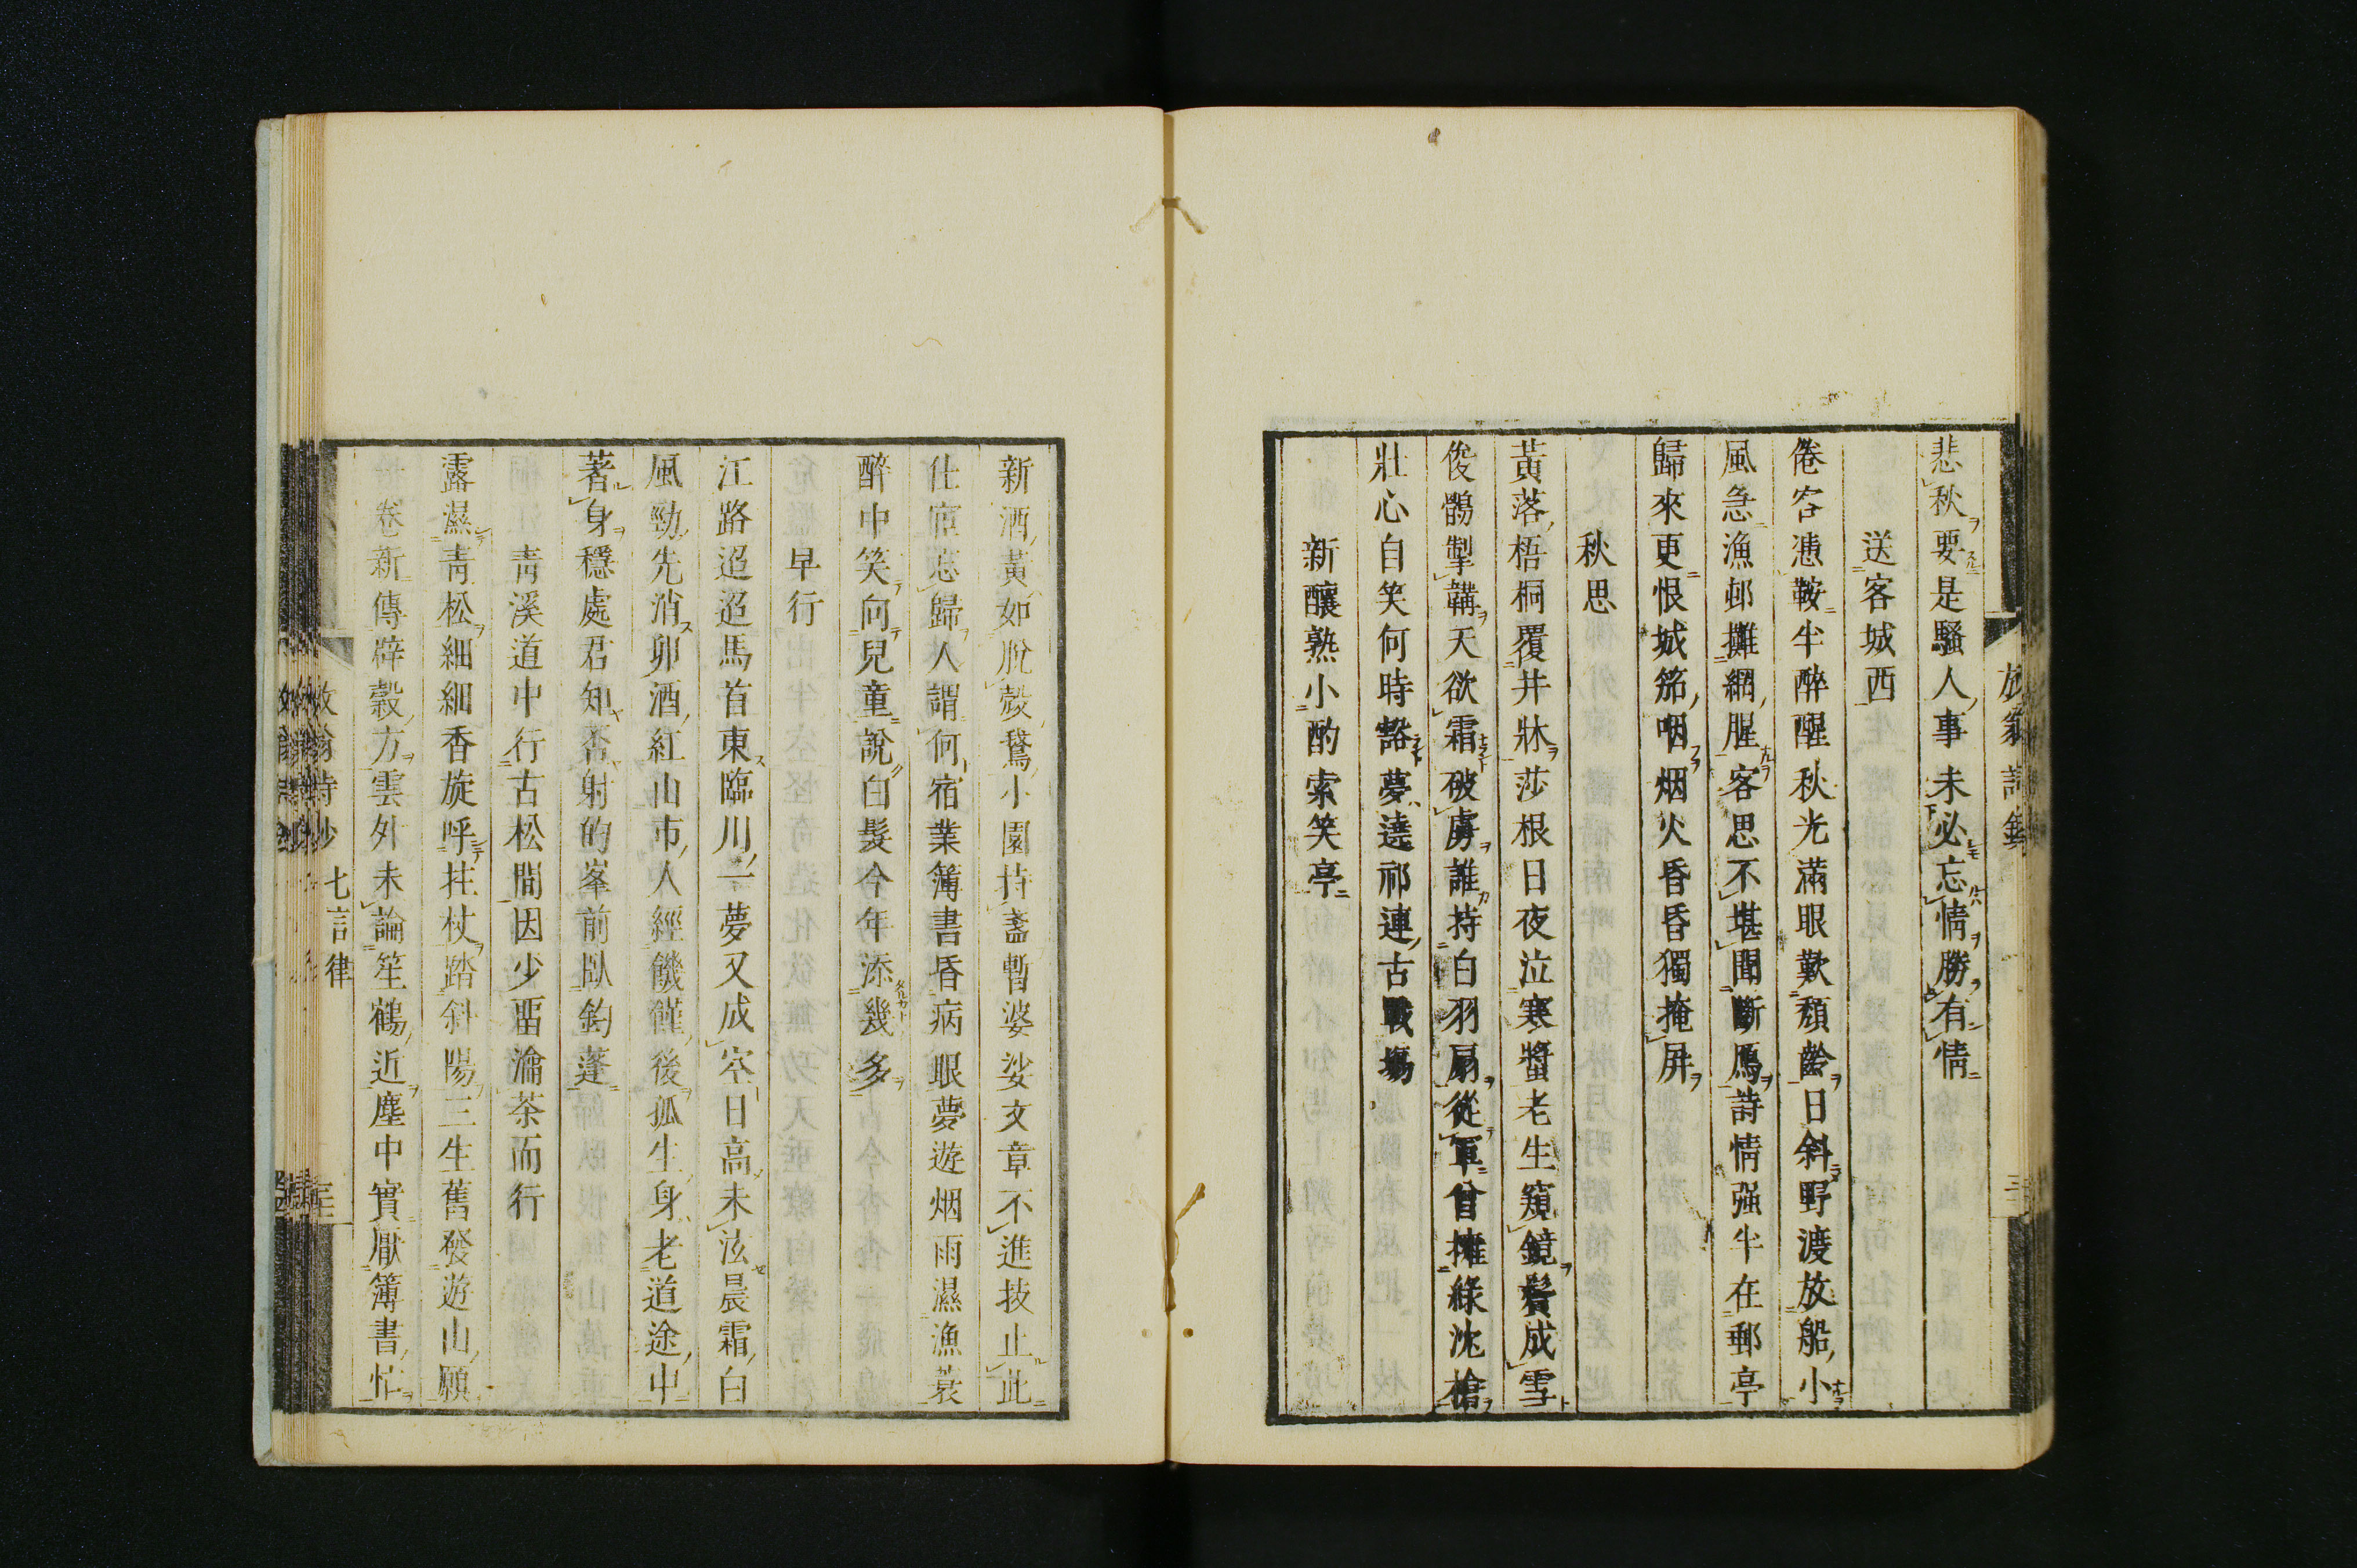 悲秋要是騷人事未必忘情勝有情
送客城西
倦客憑鞍半醉醒秋光滿眼歎頹齡日斜野渡放船小
風急漁邨攤網腥客思不堪聞斷鴈詩情强半在郵亭
歸來更恨城笳咽烟火昏昏獨掩屏
秋思
黃落梧桐覆井牀莎根日夜泣寒螿老生窺鏡鬢成雪
俊鶻掣韝天欲霜破虜誰持白羽扇從軍曾擁綠沈槍
壯心自笑何時豁夢遶祁連古戰場
新釀熟小酌索笑亭
新酒黃如脫殼鵞小園持盞暫婆娑文章不進技止此
仕宦忘歸人謂何宿業簿書昏病眼夢遊烟雨濕漁蓑
醉中笑向兒童說白髮今年添幾多
早行
江路迢迢馬首東臨川一夢又成空日高未泫晨霜白
風勁先消卯酒紅山市人經饑饉後孤生身老道途中
著身穩處君知否射的峯前臥釣蓬
青溪道中行古松間因少畱瀹茶而行
露濕青松細細香旋呼拄杖踏斜陽三生舊發遊山願
卷新傳辟穀方雲外未論笙鶴近塵中實厭簿書忙
放翁詩鈔 七言律